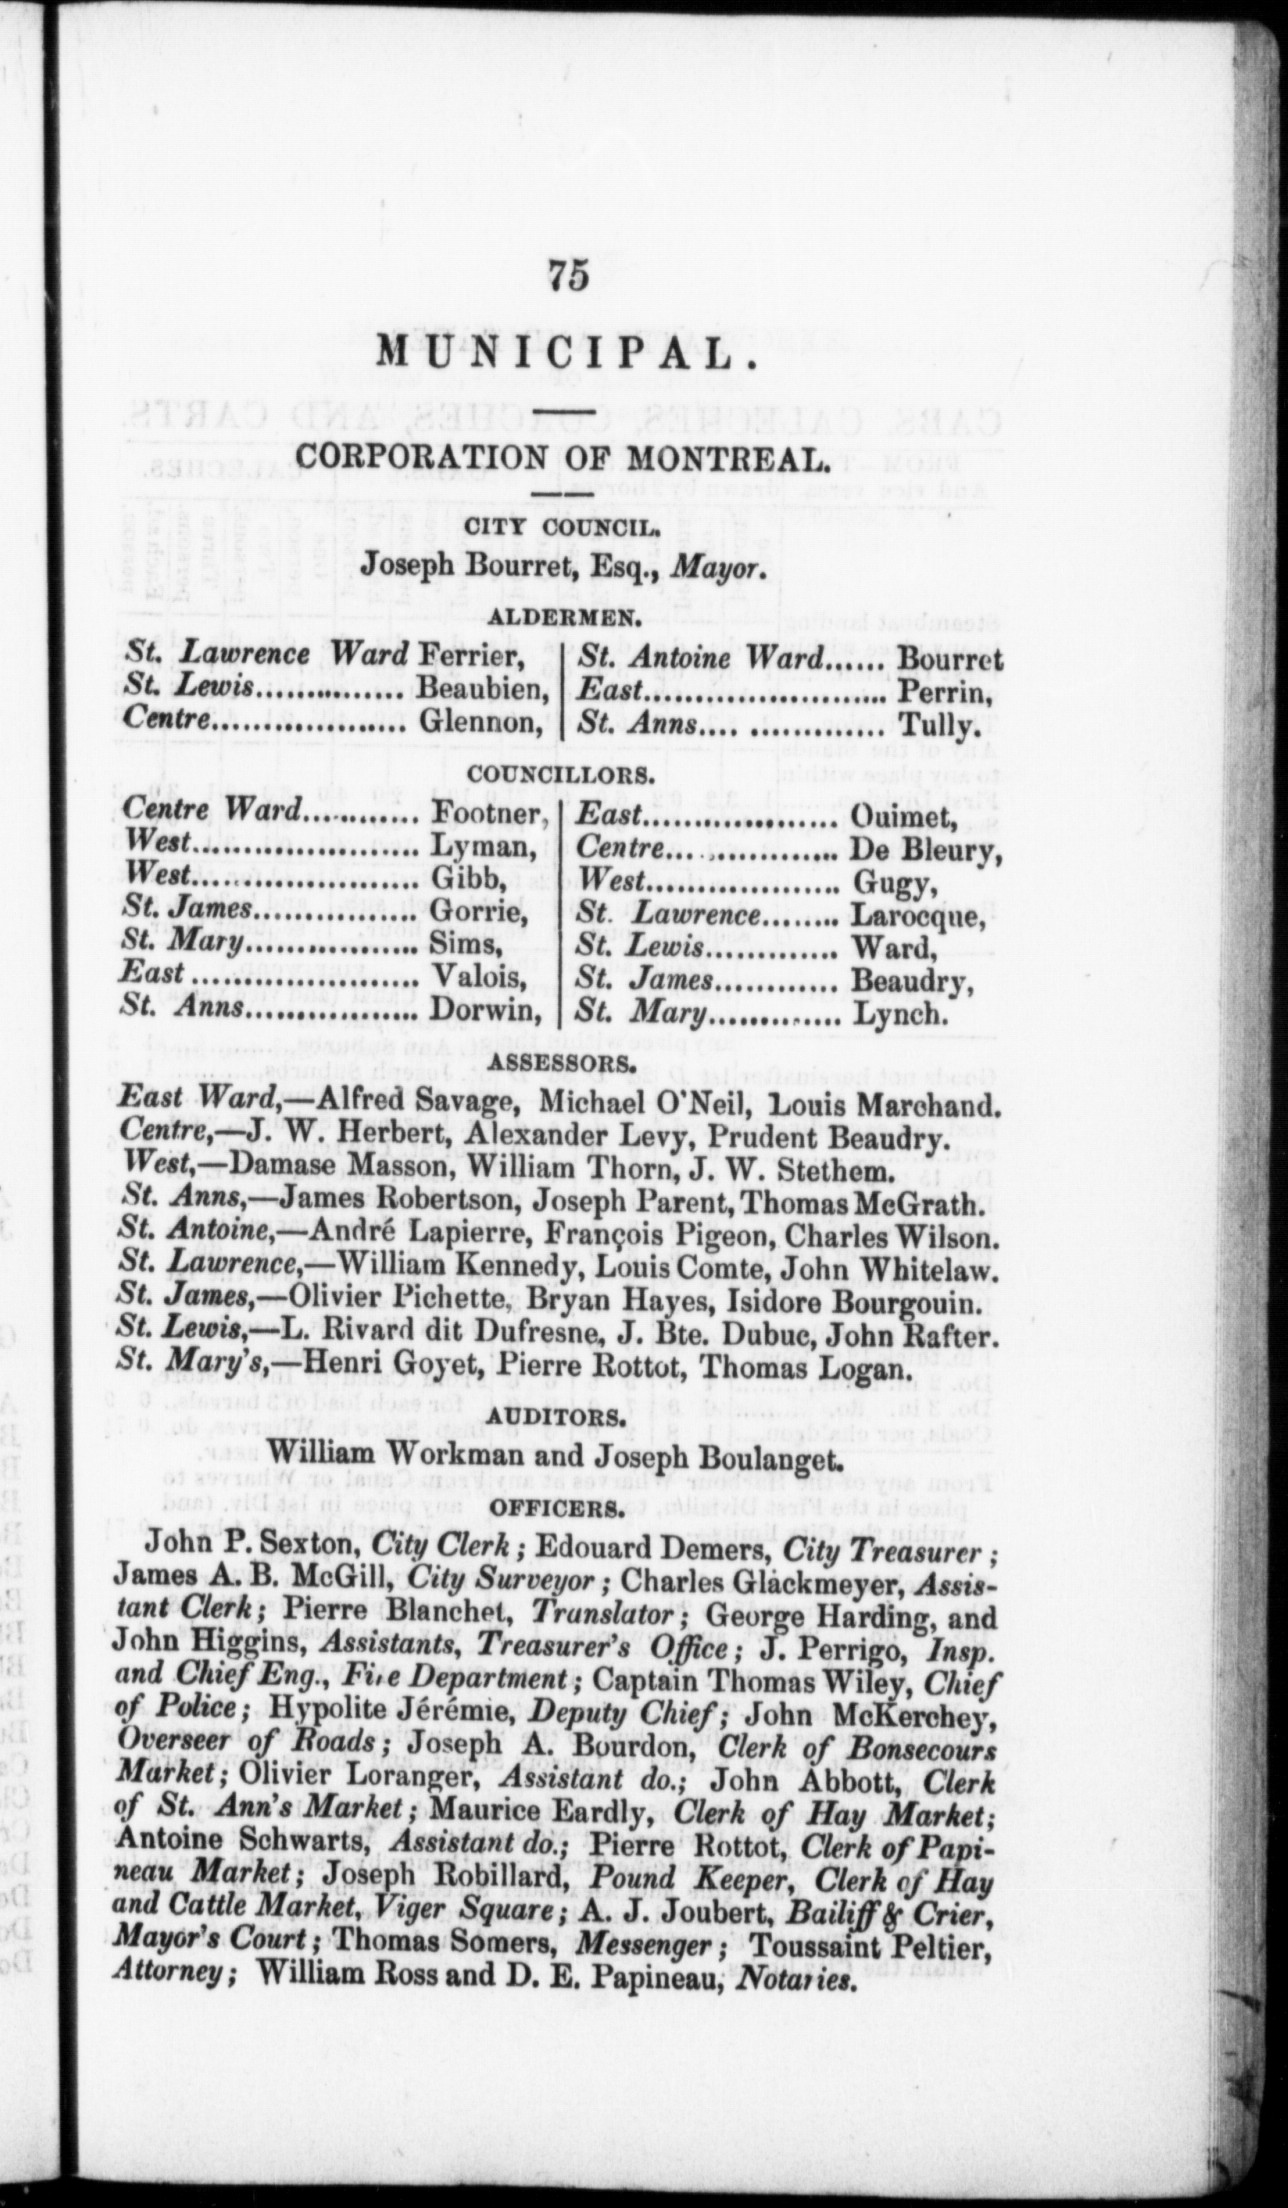 75
MUNICIPAL.
CORPORATION OF MONTREAL.
CITY COUNCIL.
Joseph Bourret, Esq., Mayor.
ALDERMEN.
St. Lawrence Ward Ferrier,
St. Lewis............... Beaubien,
Centre................... Glennon,
St. Antoine Ward...... Bourret
East........................ Perrin,
St. Anns.... ............. Tully.
COUNCILLORS.
Centre Ward............ Footner,
West...................... Lyman,
West...................... Gibb,
St. James................ Gorrie,
St. Mary................. Sims,
East ...................... Valois,
St. Anns................. Dorwin,
East................... Ouimet,
Centre... .............. De Bleury,
West................... Gugy,
St. Lawrence........ Larocque,
St. Lewis............. Ward,
St. James............ Beaudry,
St. Mary............. Lynch.
ASSESSORS.
East Ward,—Alfred Savage, Michael O'Neil, Louis Marchand.
Centre,—J. W. Herbert, Alexander Levy, Prudent Beaudry.
West,—Damase Masson, William Thorn, J. W. Stethem.
St. Anns,—James Robertson, Joseph Parent, Thomas McGrath.
St. Antoine,—André Lapierre, François Pigeon, Charles Wilson.
St. Lawrence,—William Kennedy, Louis Comte, John Whitelaw.
St. James,—Olivier Pichette, Bryan Hayes, Isidore Bourgouin.
St. Lewis,—L. Rivard dit Dufresne, J. Bte. Dubuc, John Rafter.
St. Mary's,—Henri Goyet, Pierre Rottot, Thomas Logan.
AUDITORS.
William Workman and Joseph Boulanget.
OFFICERS.
John P. Sexton, City Clerk; Edouard Demers, City Treasurer;
James A. B. McGill, City Surveyor; Charles Glackmeyer, Assis-
tant Clerk; Pierre Blanchet, Translator; George Harding, and
John Higgins, Assistants, Treasurer's Office; J. Perrigo, Insp.
and Chief Eng., Fire Department; Captain Thomas Wiley, Chief
of Police; Hypolite Jérémie, Deputy Chief; John McKerchey,
Overseer of Roads; Joseph A. Bourdon, Clerk of Bonsecours
Market; Olivier Loranger, Assistant do.; John Abbott, Clerk
of St. Ann's Market; Maurice Eardly, Clerk of Hay Market;
Antoine Schwarts, Assistant do.; Pierre Rottot, Clerk of Papi-
neau Market; Joseph Robillard, Pound Keeper, Clerk of Hay
and Cattle Market, Viger Square; A. J. Joubert, Bailiff & Crier,
Mayor's Court; Thomas Somers, Messenger; Toussaint Peltier,
Attorney; William Ross and D. E. Papineau, Notaries.